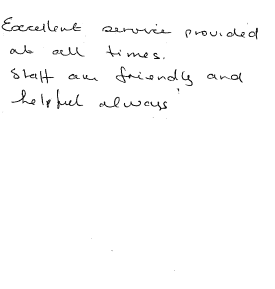 Excellent service provided
at all times.
Staff are friendly and
helpful always